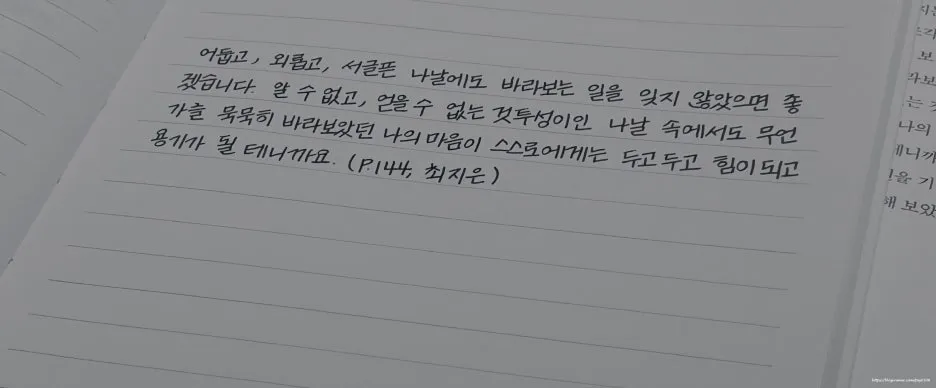 어둡고, 외롭고, 서글픈 나날에도 바라보는 일을 잊지 않았으면 좋
겠습니다. 알 수 없고, 얻을 수 없는 것투성이인 나날 속에서도 무언
가를 묵묵히 바라보았던 나의 마음이 스스로에게는 두고두고 힘이 되고
용기가 될 테니까요. (P.144, 최지은)
보
는 것
나의
테니까
해 보았